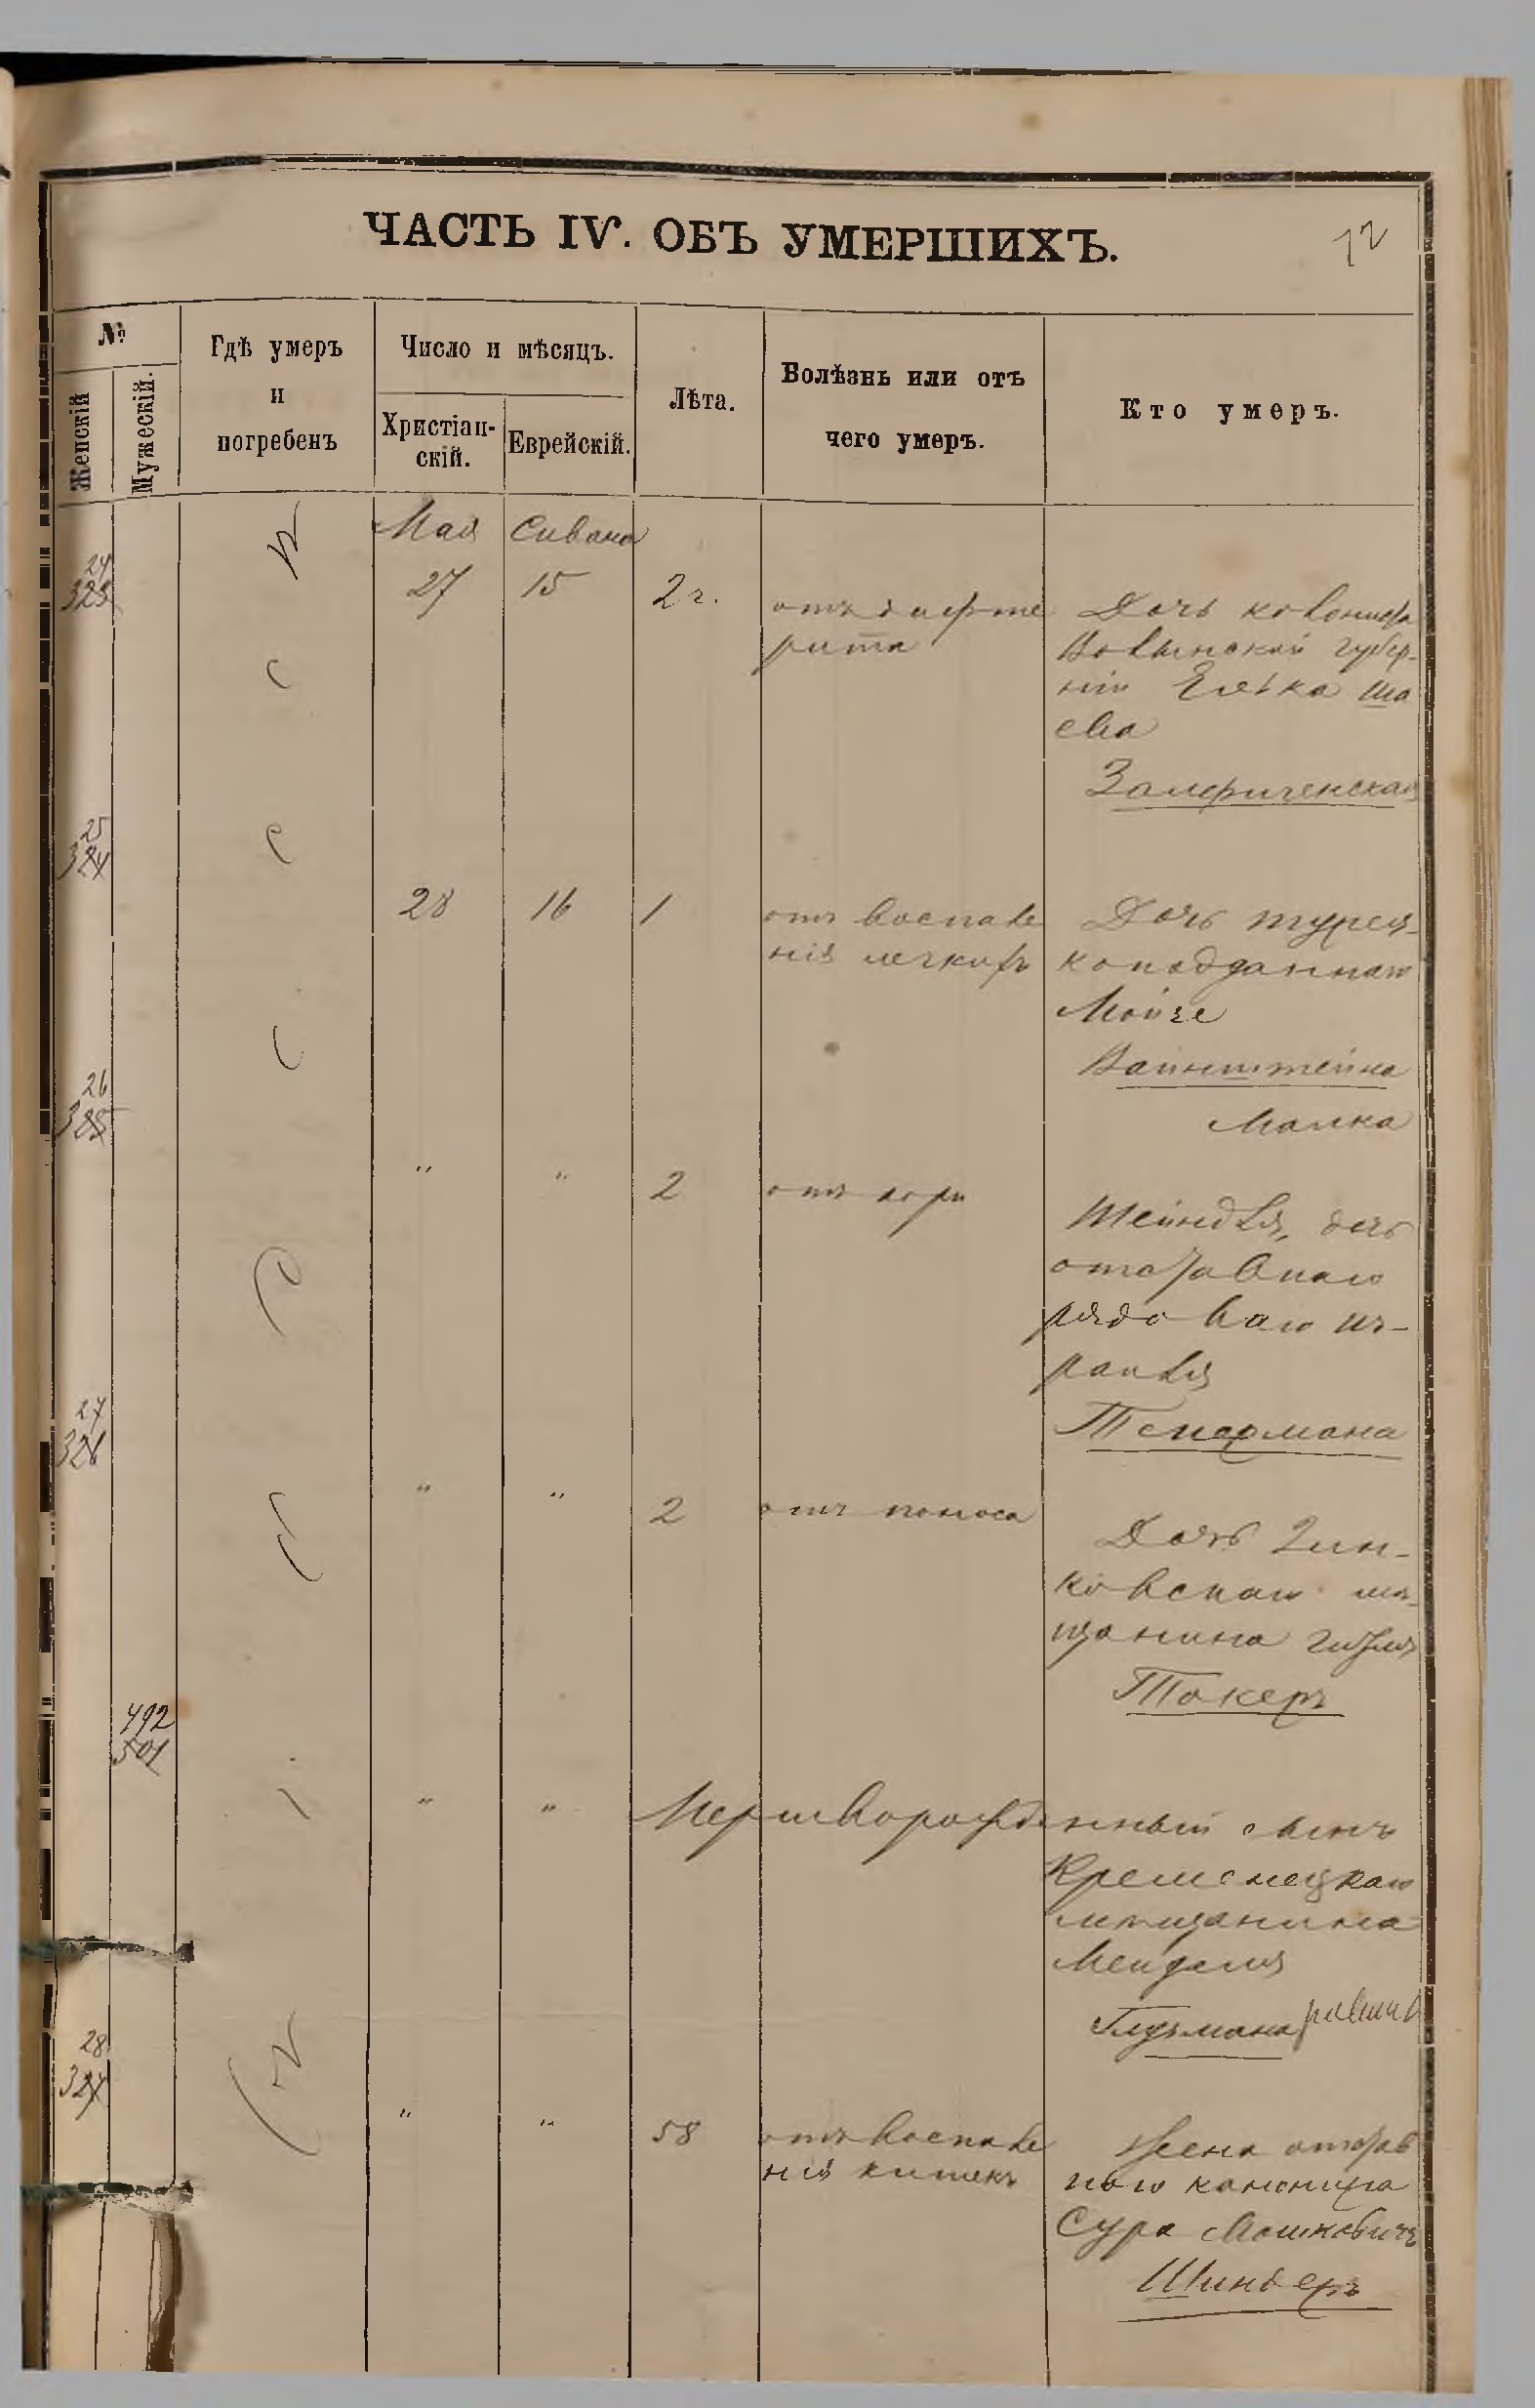 ЧАСТЬ IV. ОБЪ УМЕРШИХЪ.
72
№
Женскій
Мужескій.
Гдѣ умеръ
и
погребенъ
Число и мѣсяцъ.
Христіан-
скій.
Еврейскій.
Лѣта.
Болѣзнь или отъ
чего умеръ.
Кто умеръ.
Мая Сивана
24
323
27 15 2 г.
отъ дифте
рита
Дочь колониста
Волынской губер-
ніи Елька Ша
ева
25
324
28 16 1
отъ воспале
нія легкихъ
Дочь турец-
коподданнаго
Мойзе
Вайнштейна
Малка
26
325
" " 2
отъ кори
Шейндля, дочь
отставнаго
рядоваго Из-
раиля
27
326
" " 2
отъ поноса
Дочь Зин-
ковскаго мѣ-
щанина
Токеръ
492
501
" " Мертворожденный сынъ
Кременецкаго
мѣщанина
Менделя
Глузмана
28
327
" " 58
отъ воспале
нія кишекъ
Жена отстав
наго
Сура Мошковичъ
Шиндеръ